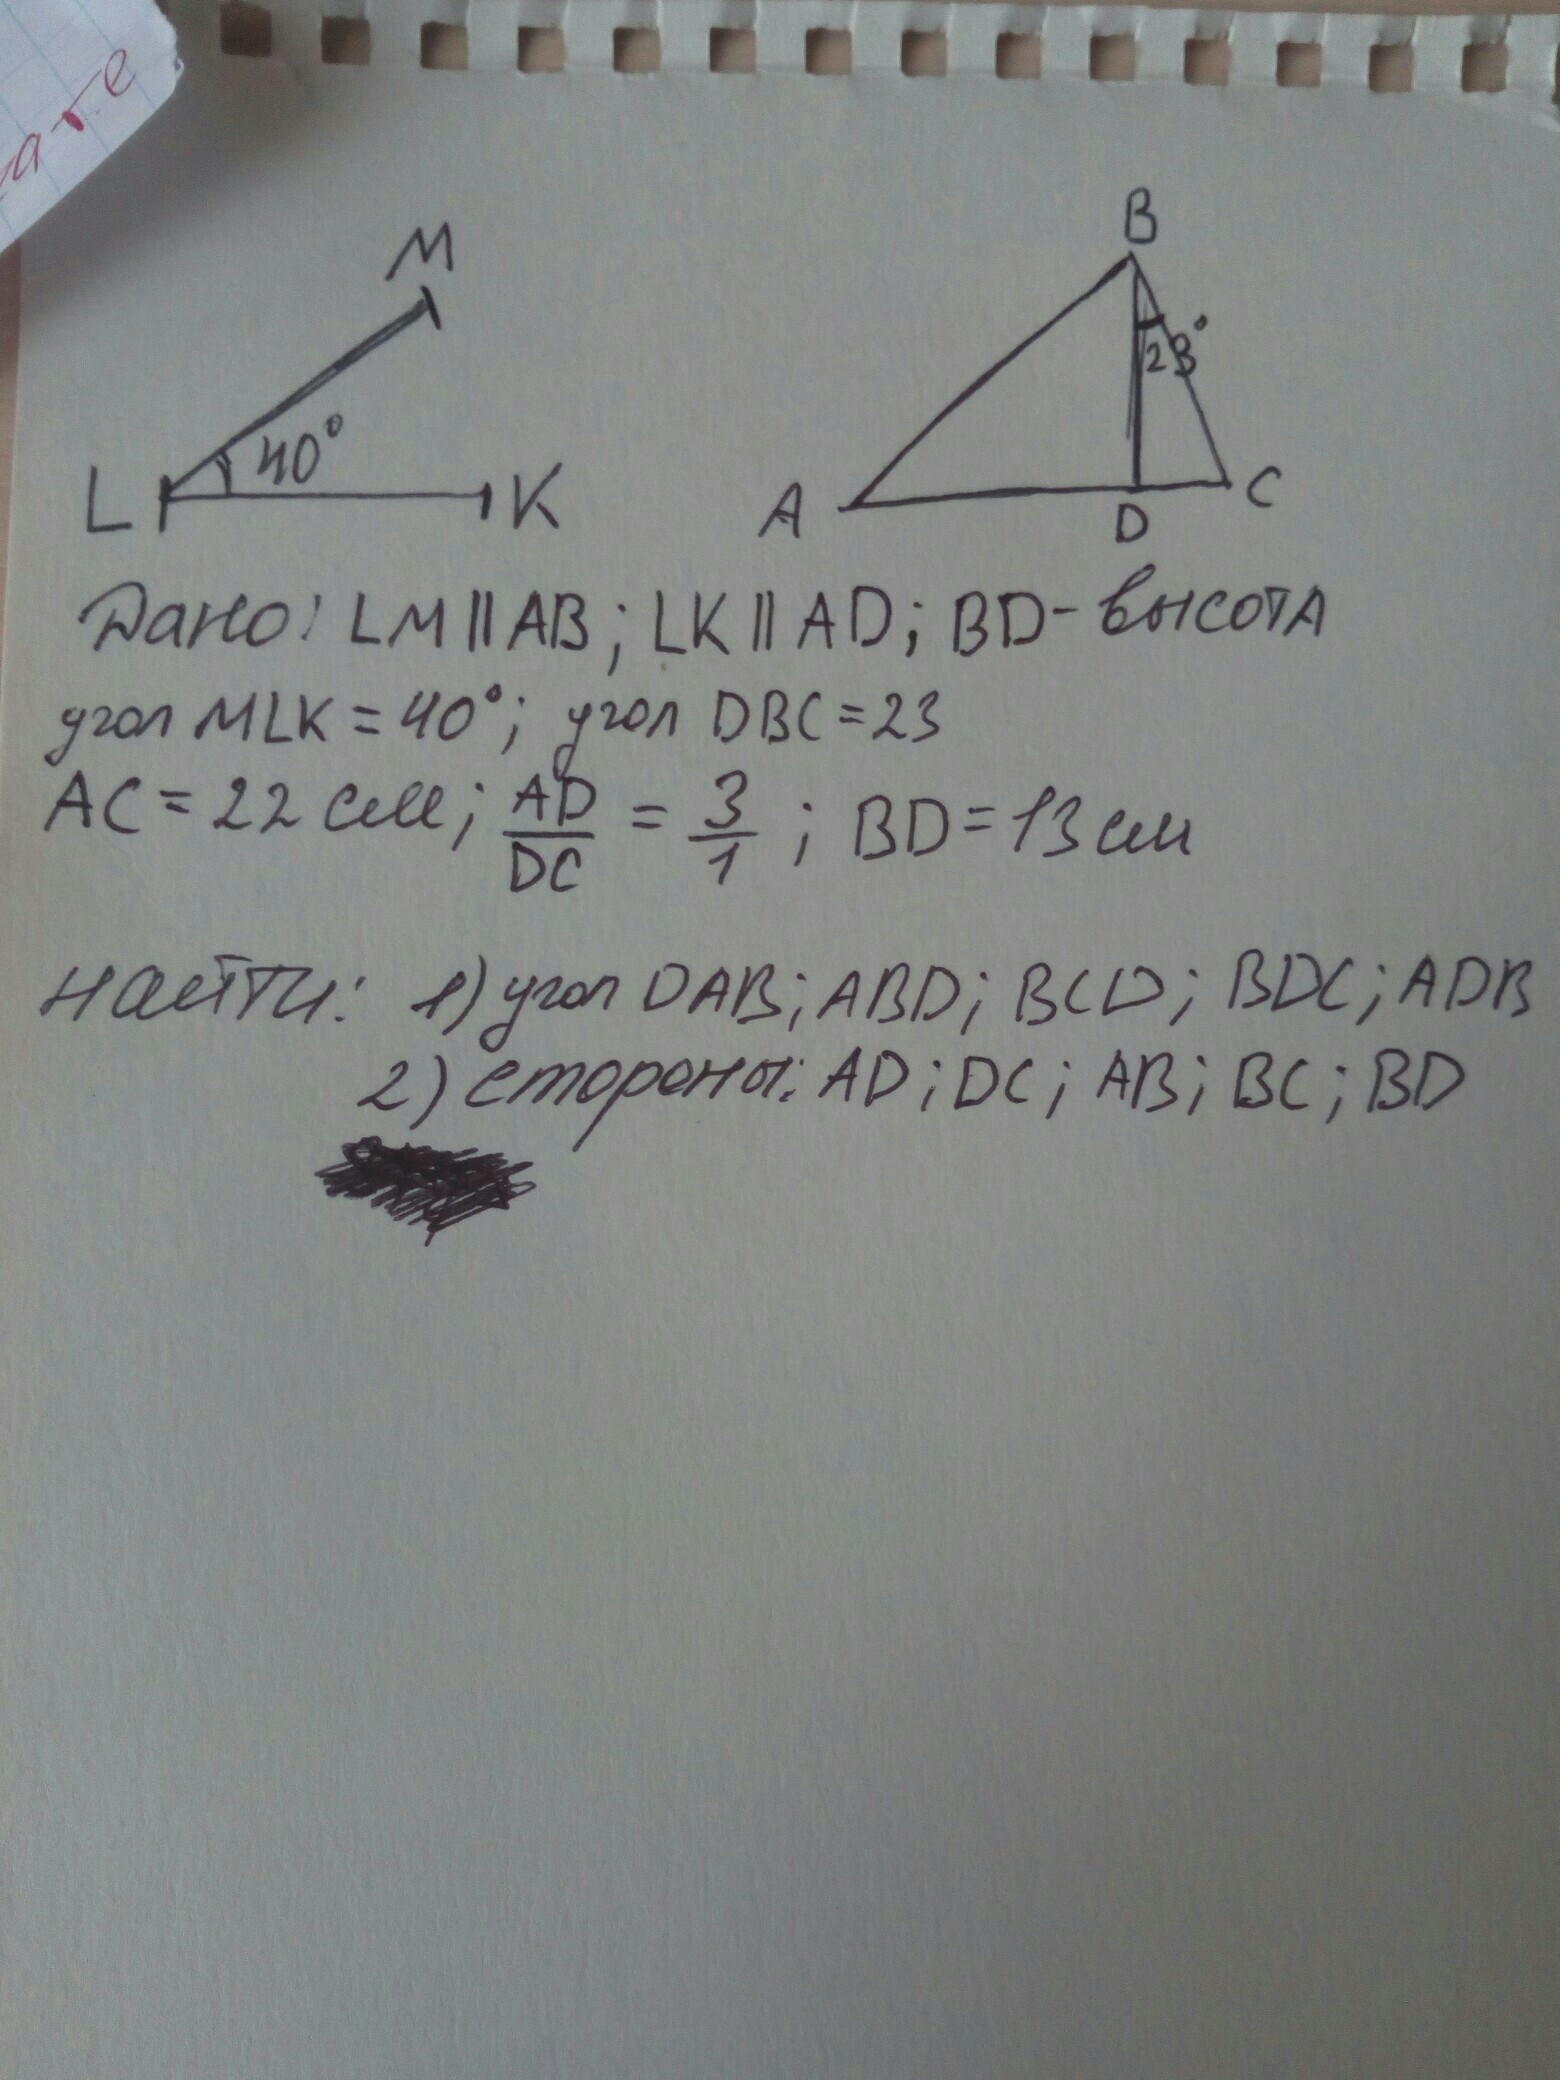 M
B
40°
23°
L
K
A
D
C
Дано: LM || AB; LK || AD; BD - высота
угол MLK = 40°; угол DBC = 23
AC = 22 см; AD/DC = 3/1; BD = 13 см
найти: 1) угол DAB; ABD; BCD; BDC; ADB
2) стороны: AD; DC; AB; BC; BD